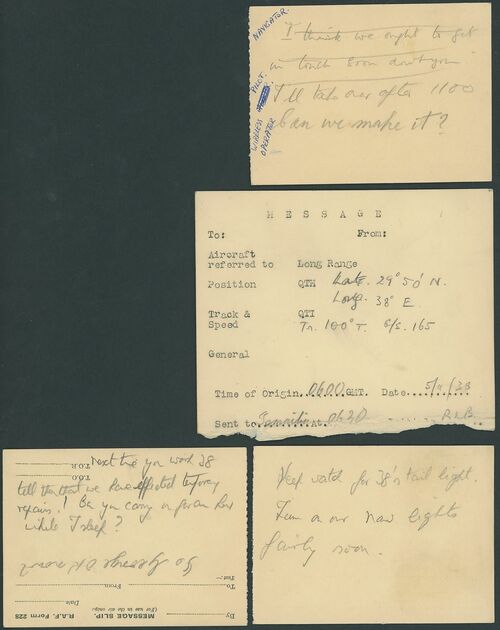 NAVIGATOR.
I think we ought to get
in touch soon don't you
PILOT.
I'll take over after 1100
WIRELESS OPERATOR
Can we make it?
MESSAGE
To: From:
Aircraft
referred to Long Range
Position QTH Late. 29° 50' N.
Long. 38° E.
Track & QTI
Speed Tr. 100° T. G/S. 165
General
Time of Origin 0600 GMT. Date 5/11/38
Sent to Ismailia At 0620 RLB
Next time you work 38
T.O.R
T.O.D
tell them that we have effected temporary
repairs! Can you carry on for an hour
while I sleep?
Go George OK now
Text:-
To From
Date
(For use in the air only.)
MESSAGE SLIP. R.A.F. Form 228
By
Keep watch for 38's tail light.
Turn on our Nav lights
fairly soon.